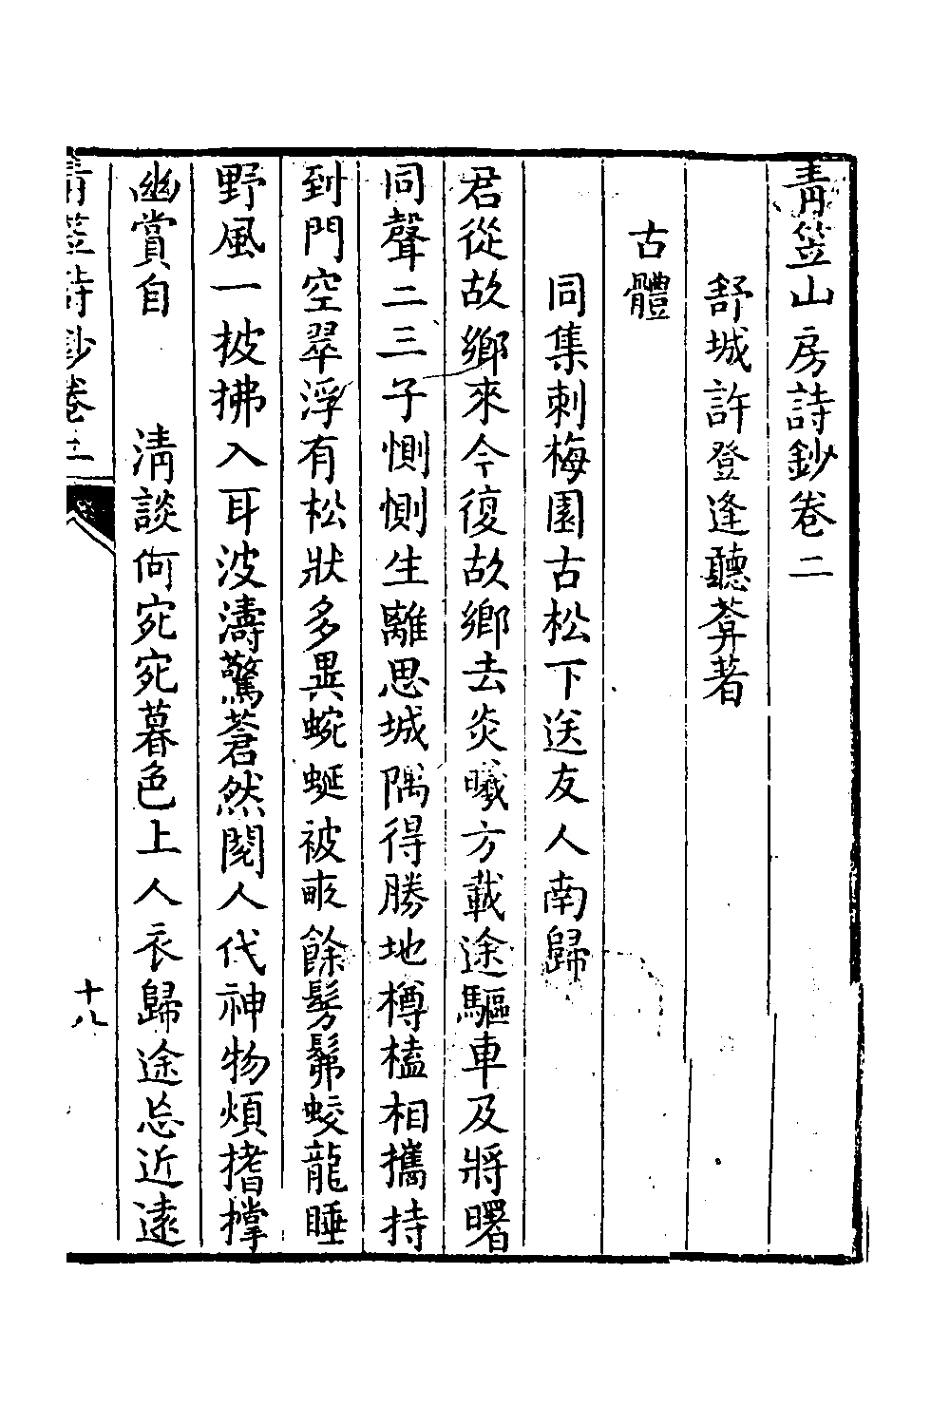 青笠山房詩鈔卷二
舒城許登逢聽蕣著
古體
同集刺梅園古松下送友人南歸
君從故鄉來今復故鄉去炎曦方載途驅車及將曙
同聲二三子惻惻生離思城隅得勝地樽榼相攜持
到門空翠浮有松狀多異蜿蜒被畝餘髣髴蛟龍睡
野風一披拂入耳波濤驚蒼然閱人代神物煩搘撐
幽賞自 清談何宛宛暮色上人衣歸途忘近遠
青笠詩鈔卷二
十八